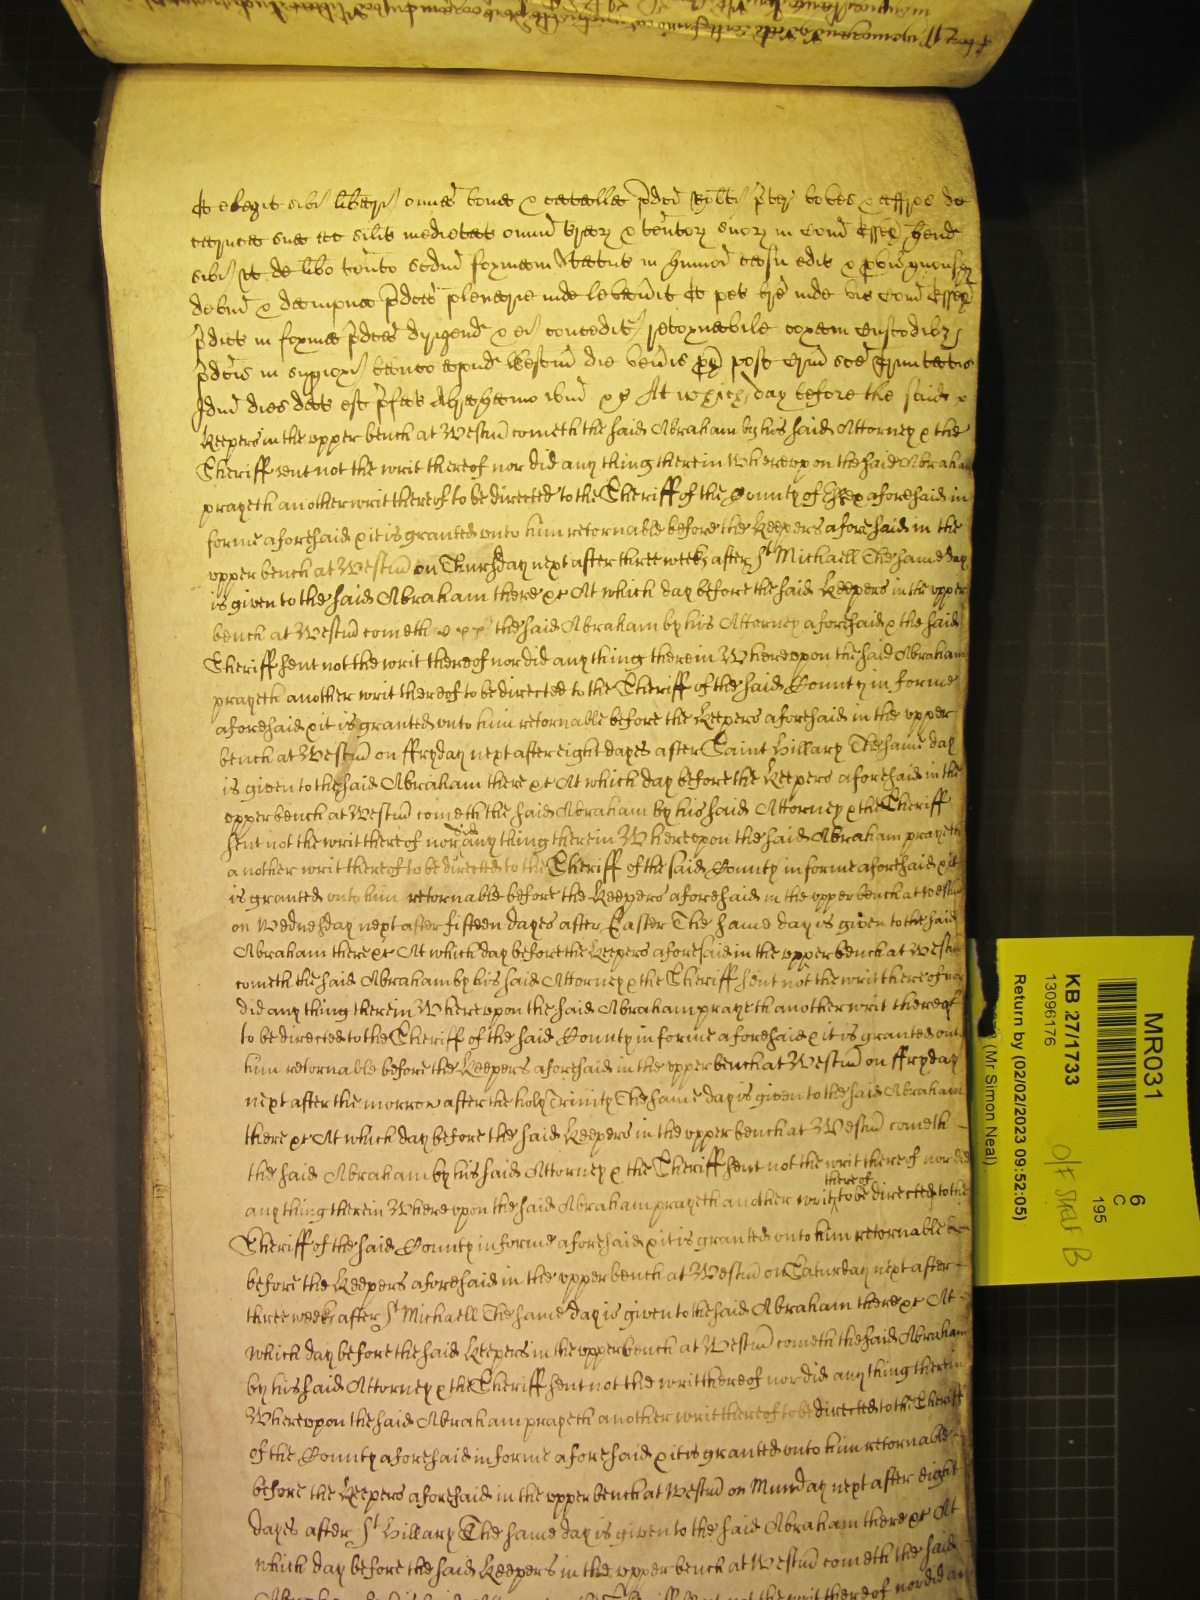 Et elegit sibi libari omia bona & catalla pdci
caruca sua ac silit medietat omniu terrar & tentor suor in Com Essex hend
sibi ut de libo tento scdm formam Statut in hmoi casu edit & pvis quousq
debm & dampna pdca plenarie inde levavit Et pet bre inde vic Com Essex
pdict in forma pdca dirigend & ei concedit retornabile coram Custodibz
pdcis in supiori banco apud Westm die venis px post Crm sce Trinitatis
Idm dies dat est pfat Abrahamo ibm &c At which day before the said
Keepers in the upper bench at Westm cometh the said Abraham by his said Attorney & the
Sheriff sent not the writ thereof nor did any thing therein Whereupon the said Abraham
prayeth another writ thereof to be directed to the Sheriff of the County of Essex aforesaid in
forme aforesaid & it is granted unto him retornable before the Keepers aforesaid in the
upper bench at Westm on Thursday next after three weeks after St Michaell The same day
is given to the said Abraham there &c At which day before the said Keepers in the upper
bench at Westm cometh the said Abraham by his Attorney aforesaid & the said
Sheriff sent not the writ thereof nor did any thing therein Whereupon the said Abraham
prayeth another writ thereof to be directed to the Sheriff of the said County in forme
aforesaid & it is granted unto him retornable before the Keepers aforesaid in the upper
bench at Westm on ffryday next after eight dayes after Saint Hillary The same day
is given to the said Abraham there &c At which day before the Keepers aforesaid in the
upper bench at Westm cometh the said Abraham by his said Attorney & the Sheriff
sent not the writ thereof nor did any thing therein Whereupon the said Abraham prayeth
another writ thereof to be directed to the Sheriff of the said County in forme aforesaid & it
is granted unto him retornable before the Keepers aforesaid in the upper bench at Westm
on Wednesday next after fifteen dayes after Easter The same day is given to the said
Abraham there &c At which day before the Keepers aforesaid in the upper bench at Westm
cometh the said Abraham by his said Attorney & the Sheriff sent not the writ thereof nor
did any thing therein Whereupon the said Abraham prayeth another writ thereof
to be directed to the Sheriff of the said County in forme aforesaid & it is granted unto
him retornable before the Keepers aforesaid in the upper bench at Westm on ffryday
next after the morrow after the holy Trinity The same day is given to the said Abraham
there &c At which day before the said Keepers in the upper bench at Westm cometh
the said Abraham by his said Attorney & the Sheriff sent not the writ thereof nor did
any thing therein Whereupon the said Abraham prayeth another writ thereof to be directed to the
Sheriff of the said County in forme aforesaid & it is granted unto him retornable
before the Keepers aforesaid in the upper bench at Westm on Saturday next after
three weeks after St Michaell The same day is given to the said Abraham there &c At
which day before the said Keepers in the upper bench at Westm cometh the said Abraham
by his said Attorney & the Sheriff sent not the writ thereof nor did any thing therein
Whereupon the said Abraham prayeth another writ thereof to be directed to the Sheriff
of the County aforesaid in forme aforesaid & it is granted unto him retornable
before the Keepers aforesaid in the upper bench at Westm on Munday next after eight
dayes after St Hillary The same day is given to the said Abraham there &c At
which day before the said Keepers in the upper bench at Westm cometh the said
MR031
6
C
195
KB 27/1733
13096176
O/F Shelf B
Return by (02/02/2023 09:52:05)
(Mr Simon Neal)